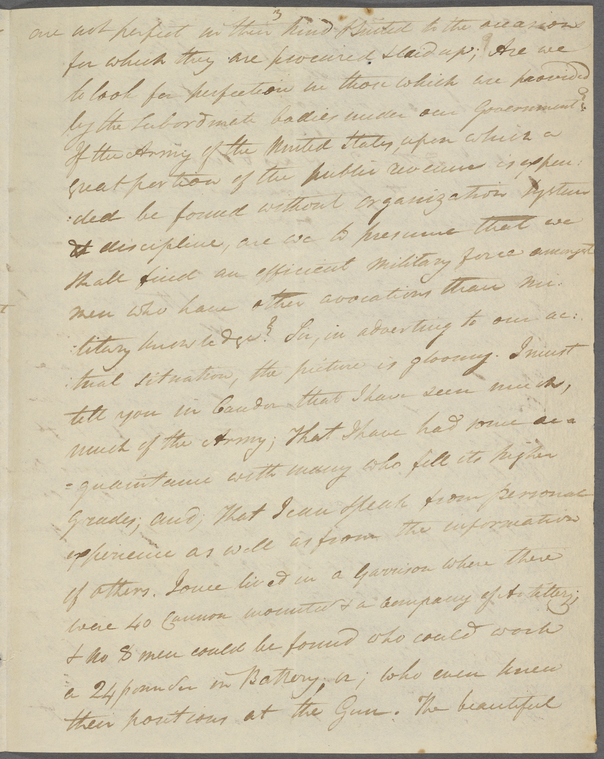 3
are not perfect in their kind & suited to the occasions
for which they are procured & laid up; Are we
to look for perfection in those which are provided
by the Subordinate bodies under our Government?
If the Army of the United States, upon which a
great portion of the public revenue is expen:
:ded be found without organization System
& discipline, are we to presume that we
shall find an efficient military force amongst
men who have other avocations than mi:
:litary knowledge? Sir, in adverting to our ac:
:tual situation, the picture is gloomy. I must
tell you in Candor that I have seen much,
much of the Army; that I have had some ac=
=quaintance with many who fill its higher
grades; and, that I can speak from personal
experience as well as from the information
of others. I once lived in a Garrison where there
were 40 Cannon mounted & a company of Artillery;
& no 8 men could be found who could work
a 24 pounder in Battery, or; who even knew
their positions at the Gun. The beautiful